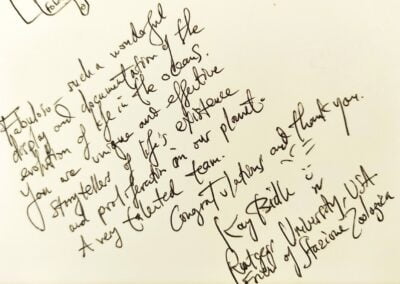 Fabuloso, such a wonderful
display and documentation of the
evolution of life in the oceans.
You are unique and effective
storytellers of life's existence
and proliferation on our planet.
A very talented team.
Congratulations and thank you.
Kay
Rutgers University, USA
Friend of Stazione Zoologica